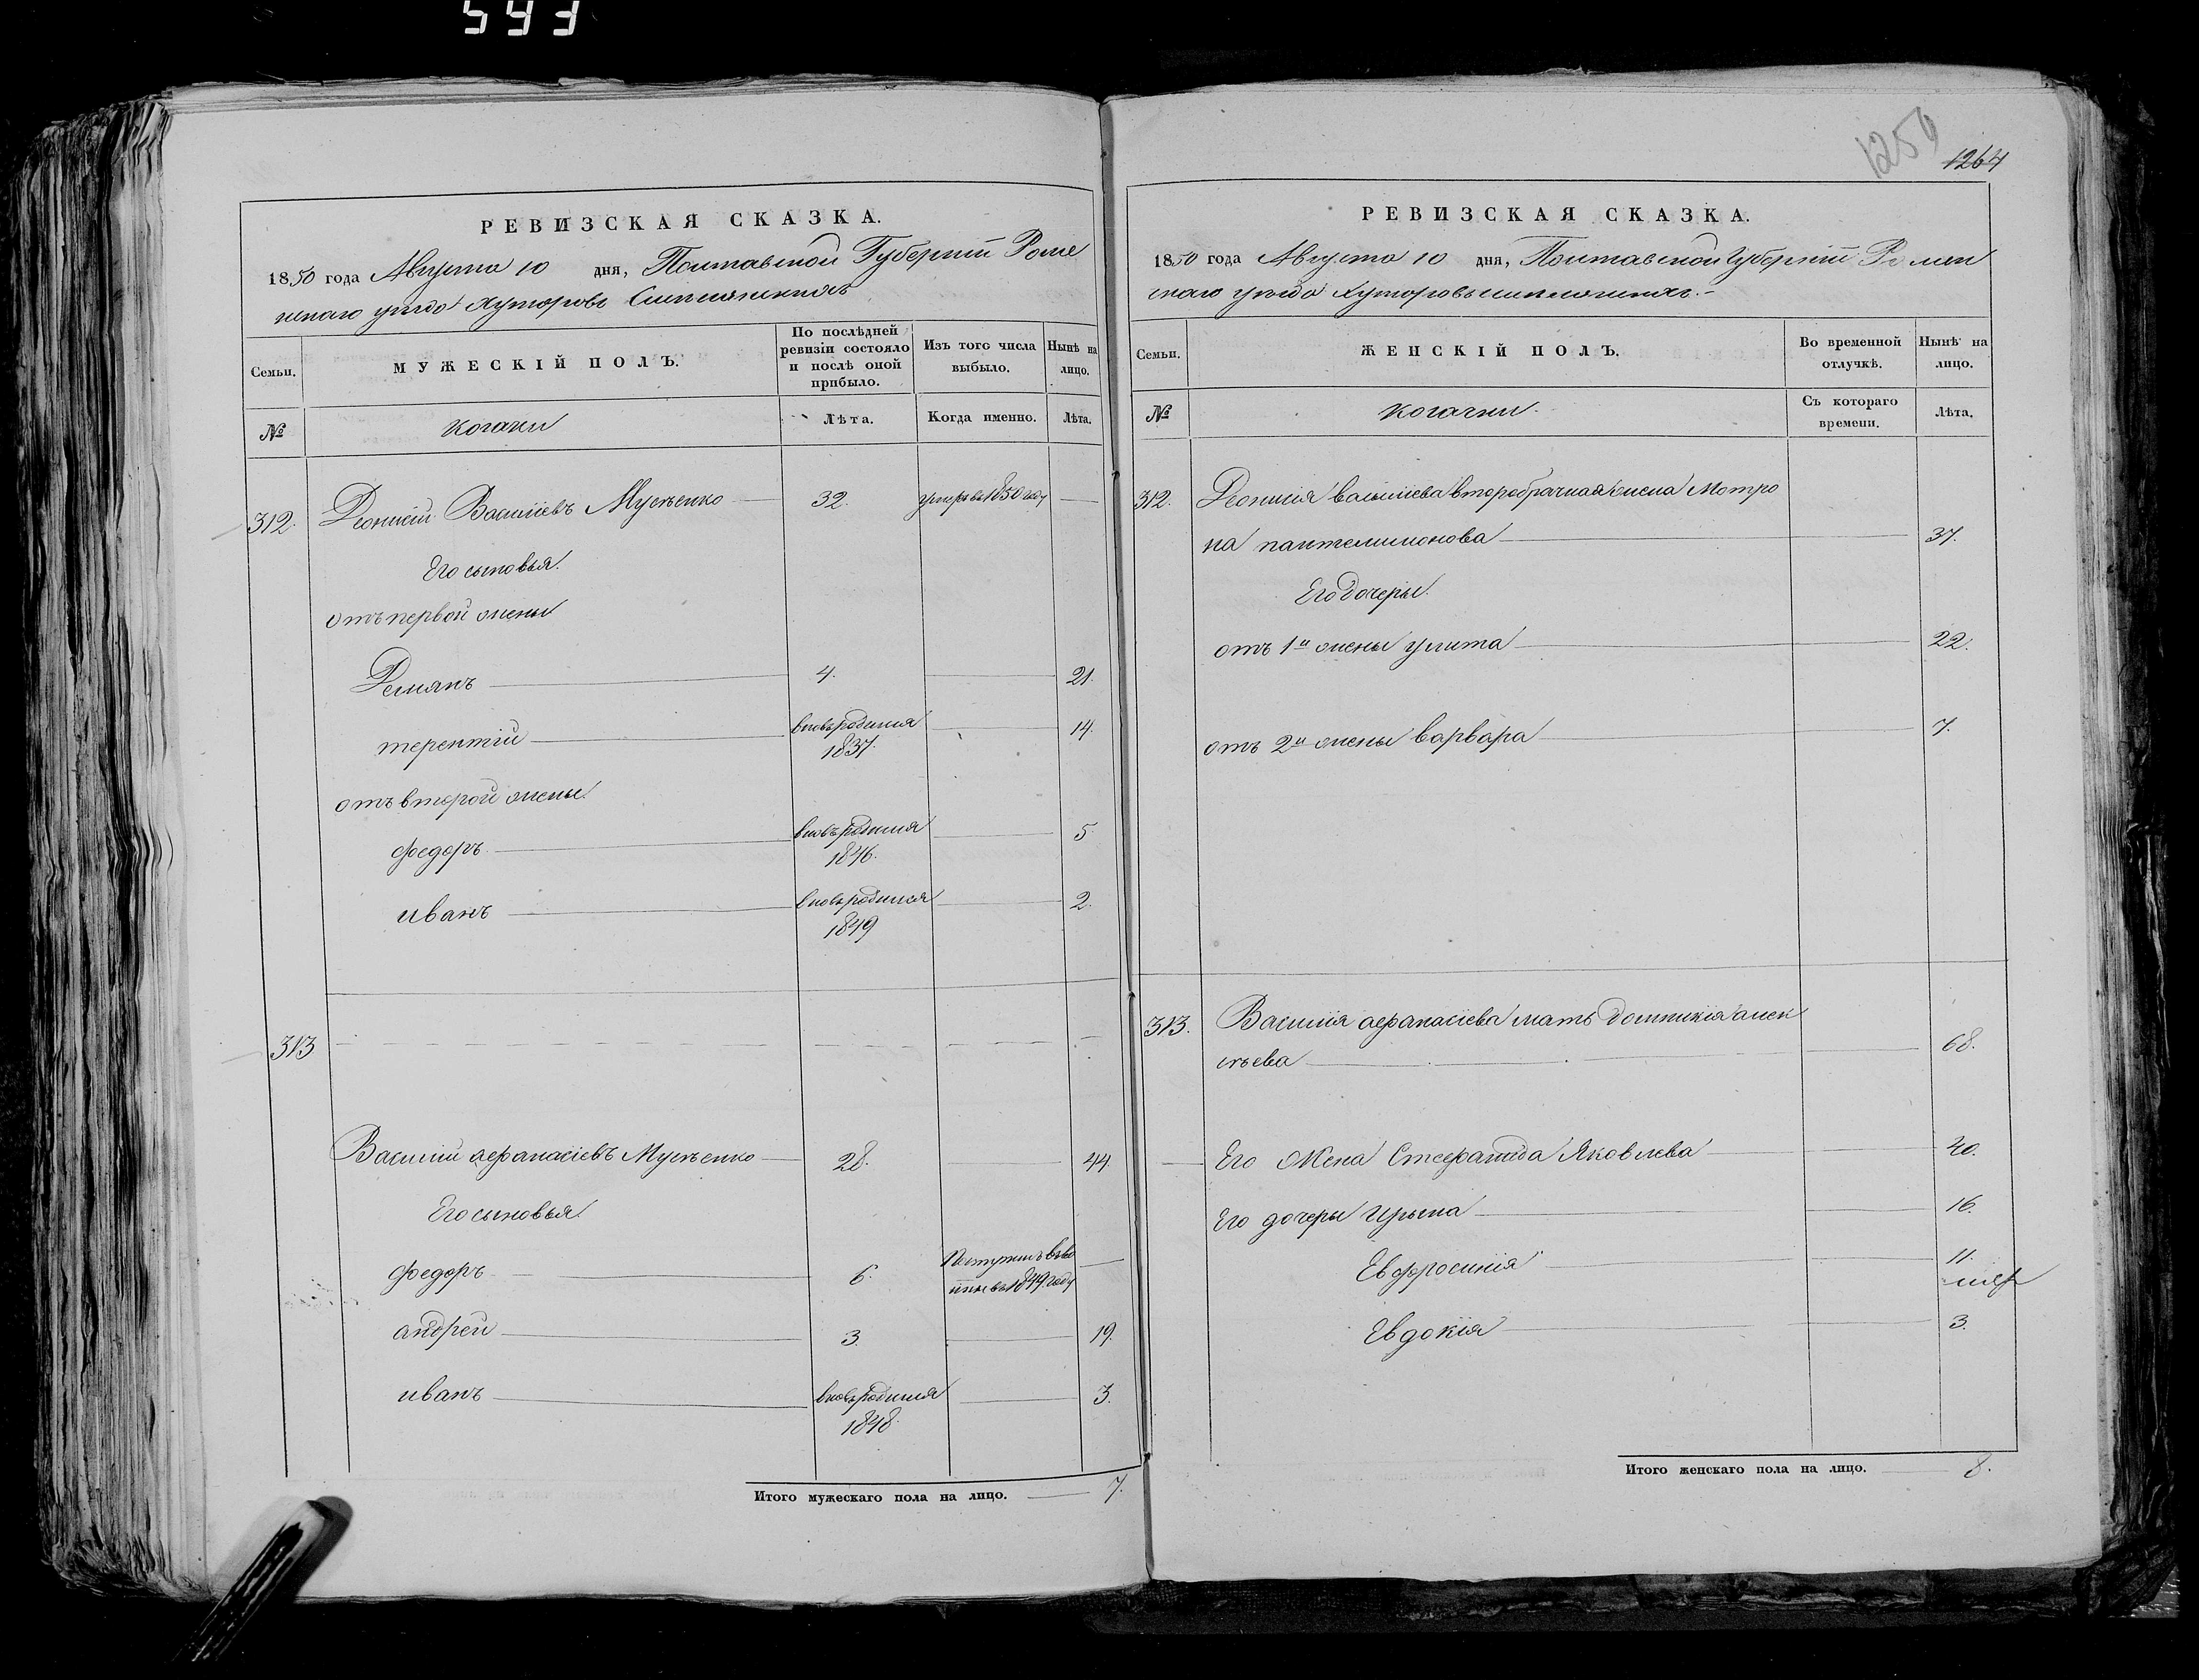 593
РЕВИЗСКАЯ СКАЗКА.
1850 года Августа 10 дня, Полтавской Губерніи Роме
нскаго уезда Хуторовъ
Семьи.
МУЖЕСКІЙ ПОЛЪ.
По послѣдней
ревизіи состояло
и послѣ оной
прибыло.
Изъ того числа
выбыло.
Нынѣ на
лицо.
№
Козаки
Лѣта.
Когда именно.
Лѣта.
312. Деонисій Василіевъ Мусѣенко 32. умеръ въ 1850 году
Его сыновья.
отъ первой жены
Демянъ 4. 21.
терентій вновьродился 14.
1837.
отъ второй жены
федоръ вновьродился 5.
1846.
иванъ вновьродился 2.
1849
313
Василій афанасіевъ Мусѣенко 28. 44.
Его сыновья
федоръ 6. Поступилъ
въ 1849 году
андрей 3. 19.
иванъ вновьродился 3.
1848.
Итого мужескаго пола на лицо. 7.
1250
1264
РЕВИЗСКАЯ СКАЗКА.
1850 года Августа 10 дня, Полтавской Губерніи Ромен
скаго уезда Хуторовъ
Семьи.
ЖЕНСКІЙ ПОЛЪ.
Во временной
отлучкѣ.
Нынѣ на
лицо.
№
Козачки
Съ котораго
времени.
Лѣта.
312. Деонисія василіева второбрачная жена Мотро
на пантелимонова 37.
Его дочеры
отъ 1й жены улита 22.
отъ 2й жены варвара 7.
313. Василія афанасіева мать домникія алек
сѣева 68.
Его Жена Стефанида Яковлева 40.
Его дочеры Ирына 16.
Евфросинія 11.
Евдокія 3.
Итого женскаго пола на лицо. 8.